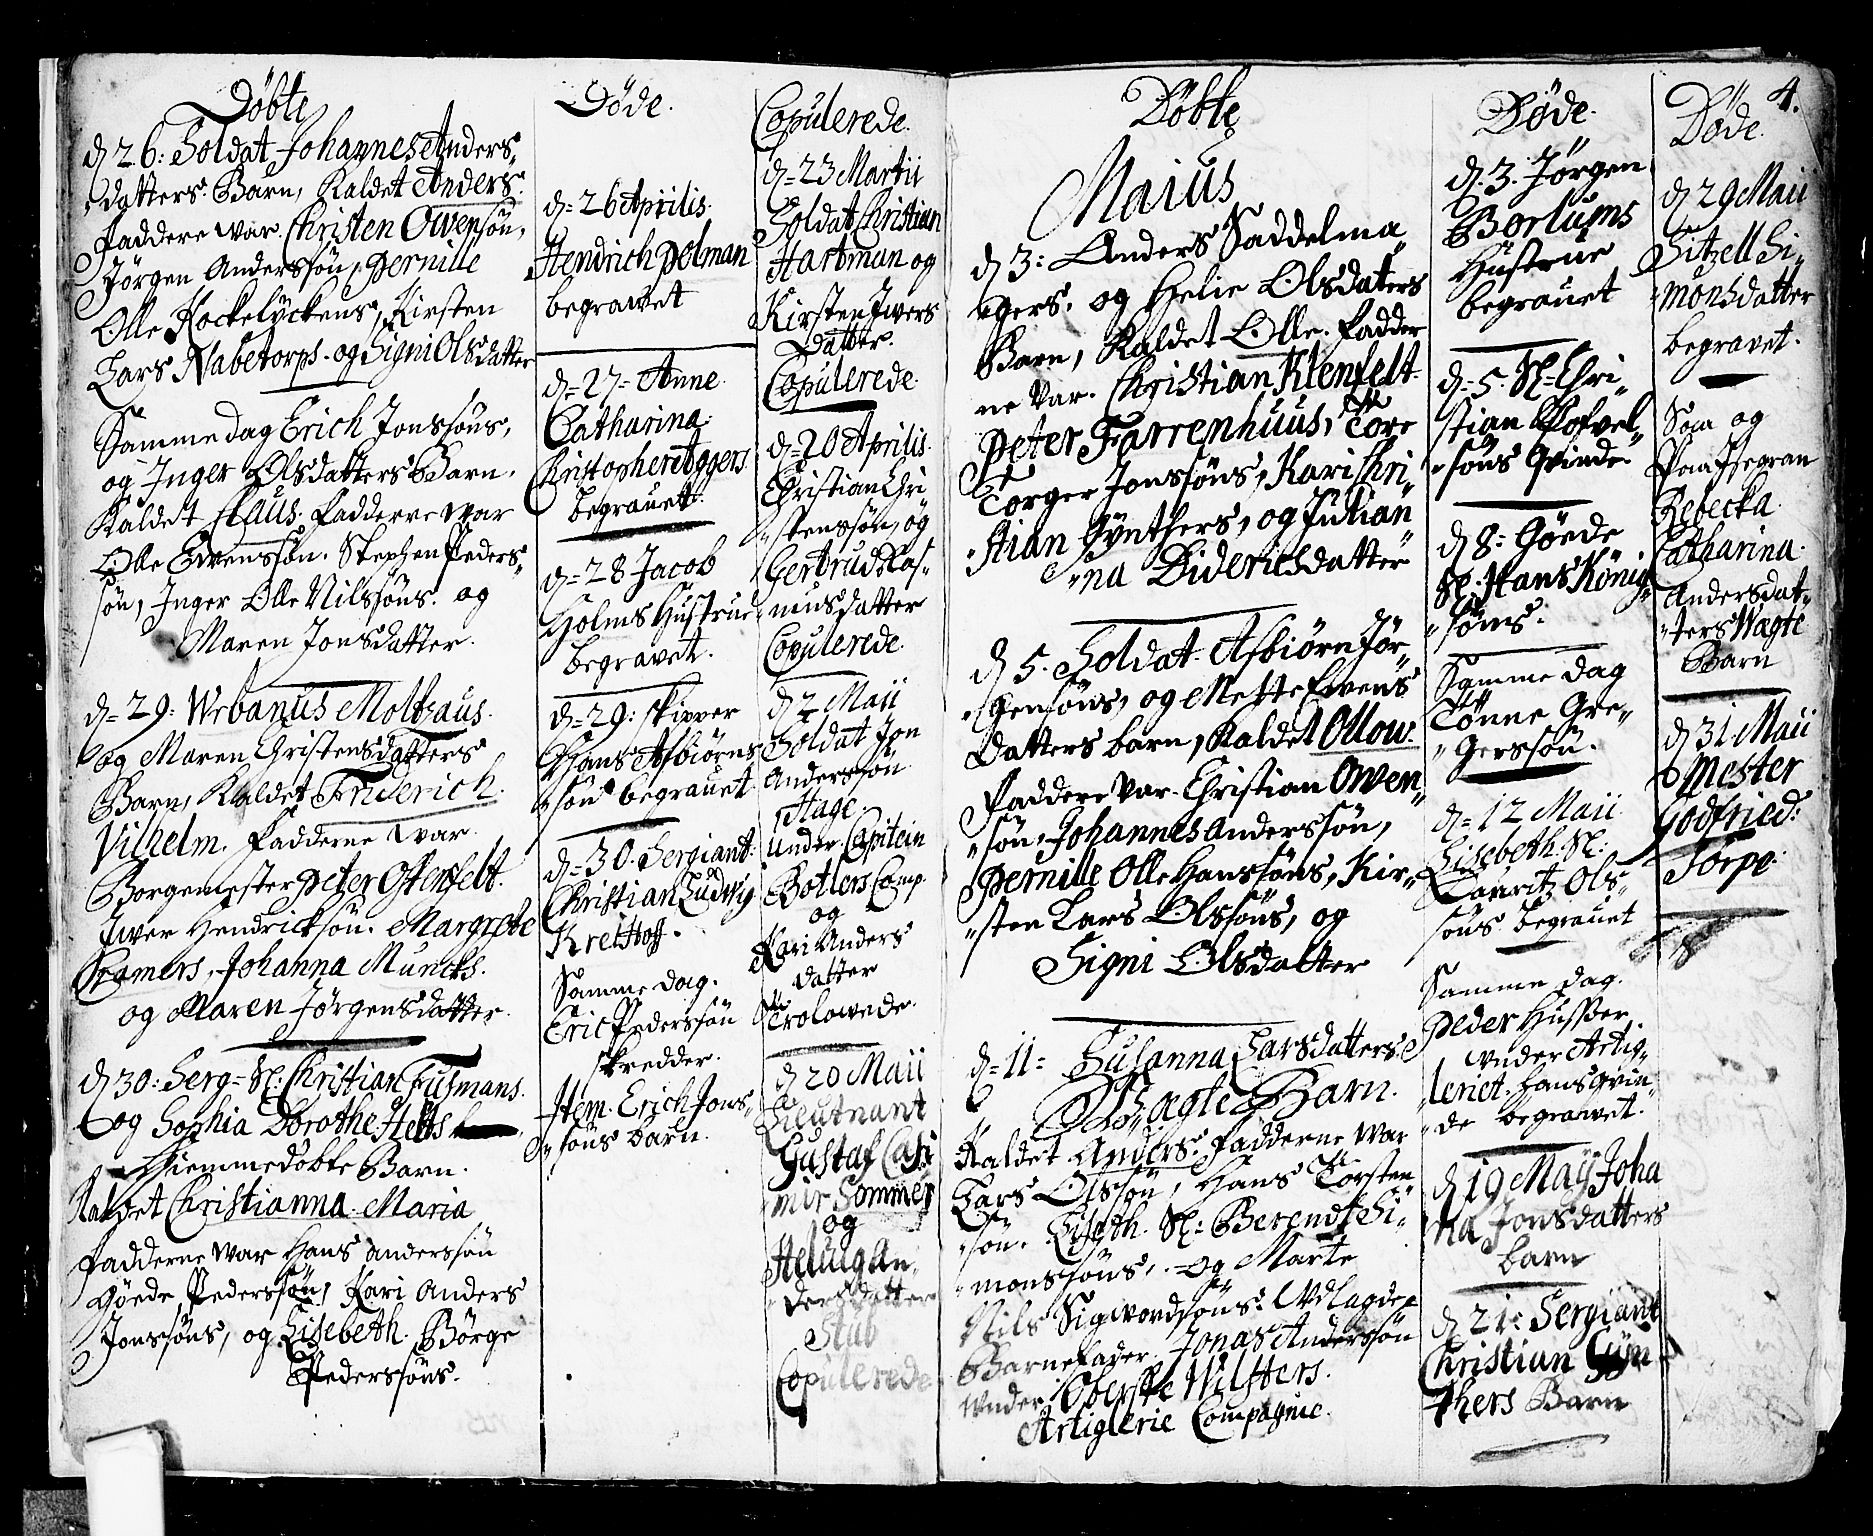 Döbte
d 26: Soldat Johannes Anders,
datters Barn, Kaldet Anders.
Faddere war. Christen Owensön,
Jörgen Anderssön, Pernille
Olle Kockelyckens, Kirsten
Lars Nabetorps. og Signi Olsdatter
Samme dag Erich Jonssöns,
og Inger Olsdatters Barn.
Kaldet Claus. Fadderne war
Olle Swenssön. Stephen Peders,,
sön, Inger Olle Nilssöns. og
Maren Jonsdatter.
d= 29: Wrbanus Moltzaus.
og Maren Christensdatters
Barn, Kaldet Friderich
Vilhelm. Fadderne war
Borgemester Peter Ostenfelt.
Iwer Hendricksön. Margrete
Cramers, Johanna Muncks.
og Maren Jörgensdatter.
d 30: Serg= Sl: Christian Fusmans.
og Sophia Dorothe Helts
Hiemmedöbte Barn.
Kaldet Christianna Maria
Fadderne war Hans anderssön
Göede Pederssön, Kari Anders
Jonssöns, og Lisebeth Börge
Pederssöns.
Döde.
d= 26 Aprilis.
Hendrich Polman
begrawet
d= 27= Anne
Catharina
Christopher Eggers
begrauet.
d= 28 Jacob
Holms Hustrue
begravet.
d= 29: skipper
Hans Asbiörns
sön begrauet
d= 30. Sergiant.
Christian Ludwig
Krethoff.
Samme dag.
Eric Pederssön
skredder.
Item. Erich Jons,,
söns barn.
Copulerede.
d= 23 Martii
Soldat Christian
Hartman og
Kirsten Iwers
Datter.
Copulerede
d= 20 Aprilis.
Christian Chri,,
,,stenssön og
Gertrud Ras,,
,,musdatter
Copulerede.
d 2 Maii
Soldat Jon
Anderssön
Stage.
under Capitein
Botlers Comp.
og
Kari Anders
datter
Trolowede.
d 20 Maii
Lieutnant
Gustaf Casi
mir Sommer
og
Helwig An,,
dersdatter
Stub
Copulerede
Döbte
Maius
d 3: Anders Saddelma,,
,,gers. og Helie Olsdaters
Barn, Kaldet Olle. Fadder
ne Var. Christian Klenfelt.
Peter Farrenhuus, Tore
Torger Jonssöns, Kari Chri,,
,,stian Gynthers, og Julian
,,na Didericsdatter
d 5. Soldat. Asbiörn Jör,,
,,gensöns, og Mette Ewens
Datters barn, Kaldet Ollow.
Faddere Var. Christian Owen,,
,,sön, Johannes Anderssön,
Pernille Olle Hanssöns, Kir,,
,,sten Lars Olssöns, og
Signi Olsdatter
d= 11= Susanna Larsdatters
Wægte Barn.
Kaldet Anders. Fadderne war
Lars Olssön, Hans Torsten
,,sön. Liseth. Sl: Berendt Si,,
,,monssöns, og Marte
Nils Sigwordsöns. Vdlagde
Barnefader. Jonas Anderssön
wnder Oberste Wilsters.
Artiglerie Compagnie.
Döde.
d. 3. Jörgen
Borlums
Hustrue
begrauet
d= 5. Sl= Chri,,
stian
,,söns Qvinde
d 8: Göede
Sl. Hans König,,
,,söns.
Samme dag
Tönne Gre,,
,,gerssön.
d= 12 Maii
Lisebeth. Sl:
Lauritz Ols,,
söns begrauet
Samme dag.
Peder Husser
wnder Artig,,
leriet. hans qvin,,
,,de begrawet.
d 19 May Joha
na Jonsdatters
barn
d 21: Sergiant
Christian Gyn
thers Barn
4.
Döde.
d 29 Maii
Sitzell Si,,
,,monsdatter
begravet.
Saa og
Rebecka
Catharina.
Andersdat,,
,,ters Wægte
Barn
d 31 Maii
Mester
Godtfried:
Törpe.